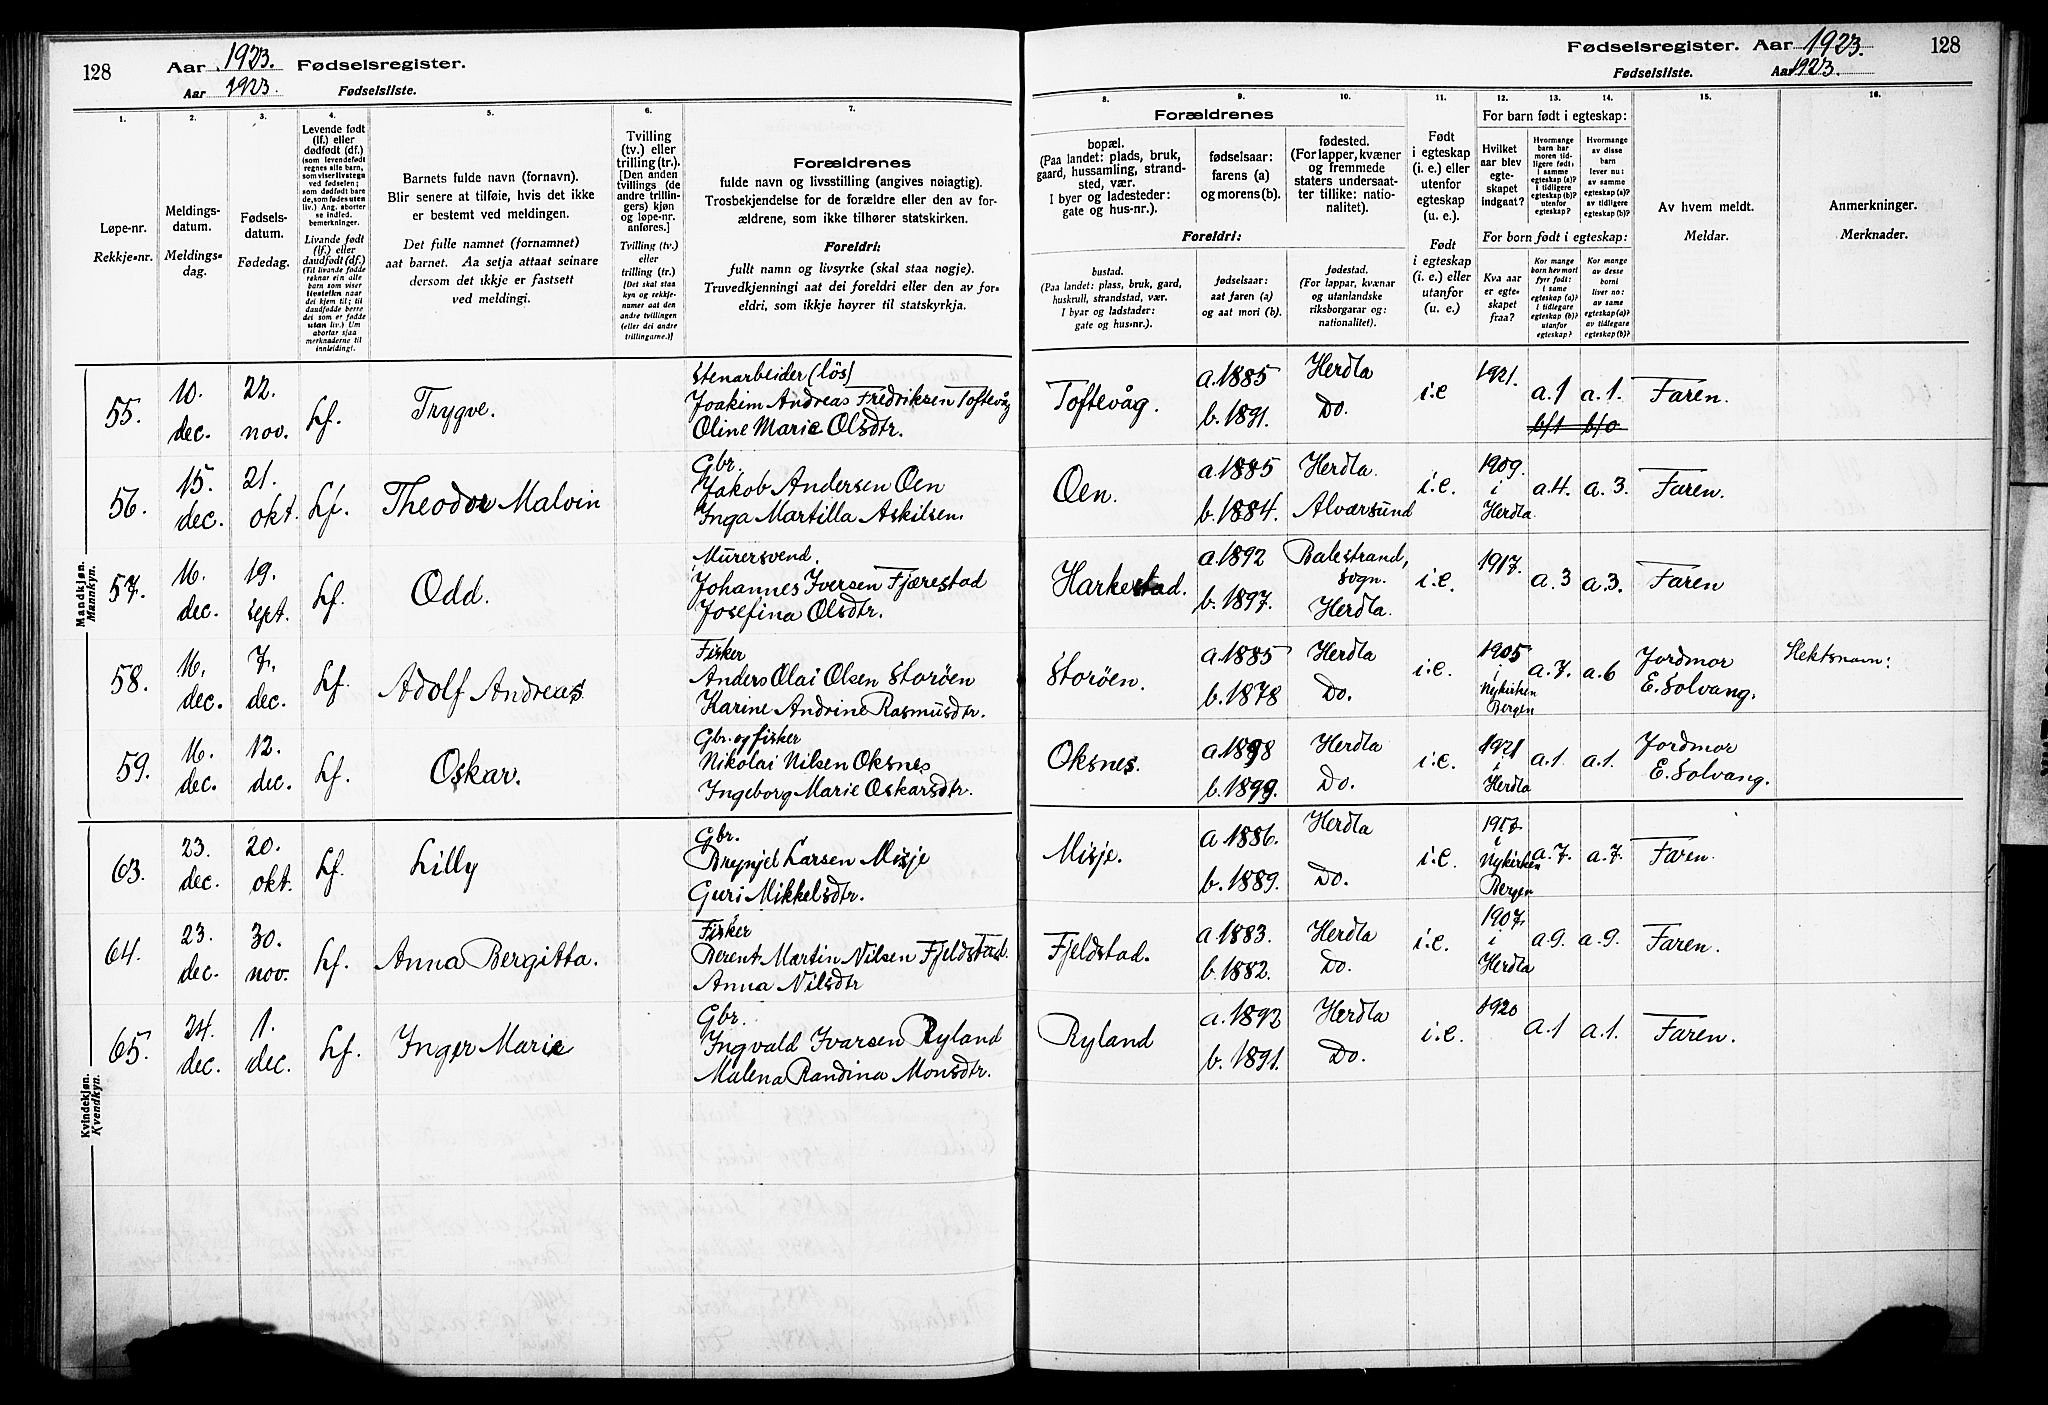 128 Aar 1923. Fødselsregister.
Aar 1923. Fødselsliste.
1. 2. 3. 4. 5. 6. 7.
Løpe-nr.
Rekkje-nr.
Meldings-
datum.
Meldings-
dag.
Fødsels-
datum.
Fødedag.
Levende født
(lf.) eller
dødfødt (df.)
(som levendefødt
regnes alle barn,
som viser livstegn
ved fødselen;
som dødfødt bare
de, som fødes uten
liv.) Ang. aborter
se indled.
bemerkninger.
Livande født
(lf.) eller
daudfødt (df.)
(Til livande fødde
reknar ein alle
barn som viser
livsteikn naar
dei kjem til; til
daudfødde berre
dei som er fødde
utan liv.) Um
abortar sjaa
merknaderne til
innleiding!.
Barnets fulde navn (fornavn).
Blir senere at tilføie, hvis det ikke
er bestemt ved meldingen.
Det fulle namnet (fornamnet)
aat barnet. Aa setja attaat seinare
dersom det ikkje er fastsett
ved meldingi.
Tvilling
(tv.) eller
trilling (tr.).
[Den anden
tvillings (de
andre trillin-
gers) kjøn
og løpe-nr.
anføres.]
Tvilling (tv.)
eller
trilling (tr.)
[Det skal staa
kyn og rekkje-
numer aat den
andre tvillingen
(eller dei andre
trillingarne.)]
Forældrenes
fulde navn og livsstilling (angives nøiagtig).
Trosbekjendelse for de forældre eller den av for-
ældrene, som ikke tilhører statskirken.
Foreldri:
fullt namn og livsyrke (skal staa nøgje).
Truvedkjenningi aat dei foreldri eller den av for-
eldri, som ikkje høyrer til statskyrkja.
Mandkjøn.
Mannkyn.
55. 10. dec. 22. nov. Lf. Trygve.
Stenarbeider (løs)
Joakim Andreas Fredriksen Toftevåg
Oline Marie Olsdtr.
56. 15. dec. 21. okt. Lf. Theodor Malvin
Gbr.
Jakob Andersen Oen
Inga Martilla Askilsen.
57. 16. dec. 19. sept. Lf. Odd.
Murersvend.
Johannes Iversen Fjærestad
Josefina Olsdtr.
58. 16. dec. 7. dec. Lf. Adolf Andreas
Fisker
Anders Olai Olsen Storøen
Karine Andrine Rasmusdtr.
59. 16. dec. 12. dec. Lf. Oskar.
Gbr. og fisker
Nikolai Nilsen Oksnes
Ingeborg Marie Oskarsdtr.
Kvindekjøn.
Kvendkyn.
63. 23. dec. 20. okt. Lf. Lilly
Gbr.
Brynjel Larsen Misje
Guri Mikkelsdtr.
64. 23. dec. 30. nov. Lf. Anna Bergitta.
Fisker
Berent Martin Nilsen Fjeldstad.
Anna Nilsdtr
65. 24. dec. 1. dec. Lf. Inger Marie
Gbr.
Ingvald Ivarsen Ryland
Malena Randina Monsdtr.
Fødselsregister. Aar 1923. 128
Fødselsliste. Aar 1923.
8. 9. 10. 11. 12. 13. 14. 15. 16.
Forældrenes
bopæl.
(Paa landet: plads, bruk,
gaard, hussamling, strand-
sted, vær.
I byer og ladesteder:
gate og hus-nr.).
fødselsaar:
farens (a)
og morens (b).
fødested.
(For lapper, kvæner
og fremmede
staters undersaat-
ter tillike: natio-
nalitet).
Foreldri:
bustad.
(Paa landet: plass, bruk, gard,
huskrull, strandstad, vær.
I byar og ladstader:
gate og hus-nr.).
fødselsaar:
aat faren (a)
og aat mori (b).
fødestad.
(For lappar, kvænar
og utanlandske
riksborgarar og:
nationalitet).
Født
i egteskap
(i. e.) eller
utenfor
egteskap
(u. e.).
Født
i egteskap
(i. e.) eller
utanfor
(u. e.)
For barn født i egteskap:
Hvilket
aar blev
egte-
skapet
indgaat?
Hvormange
barn har
moren tid-
ligere født:
i samme
egteskap (a)?
i tidligere
egteskap (b)?
utenfor
egteskap?
Hvormange
av disse
barn
lever nu:
av samme
egteskap (a)?
av tidligere
egteskap (b)?
For born født i egteskap:
Kva aar
er egte-
skapet
fraa?
Kor mange
born hev mori
fyrr født:
i same
egteskap (a)?
i tidlegare
egteskap (b)?
utanfor
egteskap?
Kor mange
av desse
borni
liver no:
av same
egteskap (a)?
av tidlegare
egteskap (b)?
Av hvem meldt.
Meldar.
Anmerkninger.
Merknader.
Toftevåg. a. 1885 b. 1891. Herdla Do. i.e 1921. a. 1 b/1 a. 1. b/0 Faren.
Oen. a. 1885 b. 1884. Herdla. Alværsund i.e. 1909. i Herdla. a. 4. a. 3. Faren.
Harkestad. a. 1892 b. 1897. Balestrand, Sogn. Herdla. i.e. 1917. a. 3 a. 3. Faren
Storøen. a. 1885 b. 1878 Herdla Do. i.e. 1905 i Nykirken Bergen a. 7. a. 6 Jordmor E. Solvang. Slektsnavn:
Oksnes. a. 1898 b. 1899. Herdla Do. i.e. 1921 i Herdla a. 1. a. 1. Jordmor E. Solvang.
Misje. a. 1886. b. 1889. Herdla Do. i.e. i Nykirken Bergen a. 7. a. 7. Faren.
Fjeldstad. a. 1883. b. 1882. Herdla Do. i.e. 1907. i Herdla a 9. a. 9. Faren.
Ryland a. 1892 b. 1891. Herdla Do. i.e. 1920 a. 1 a. 1. Faren.